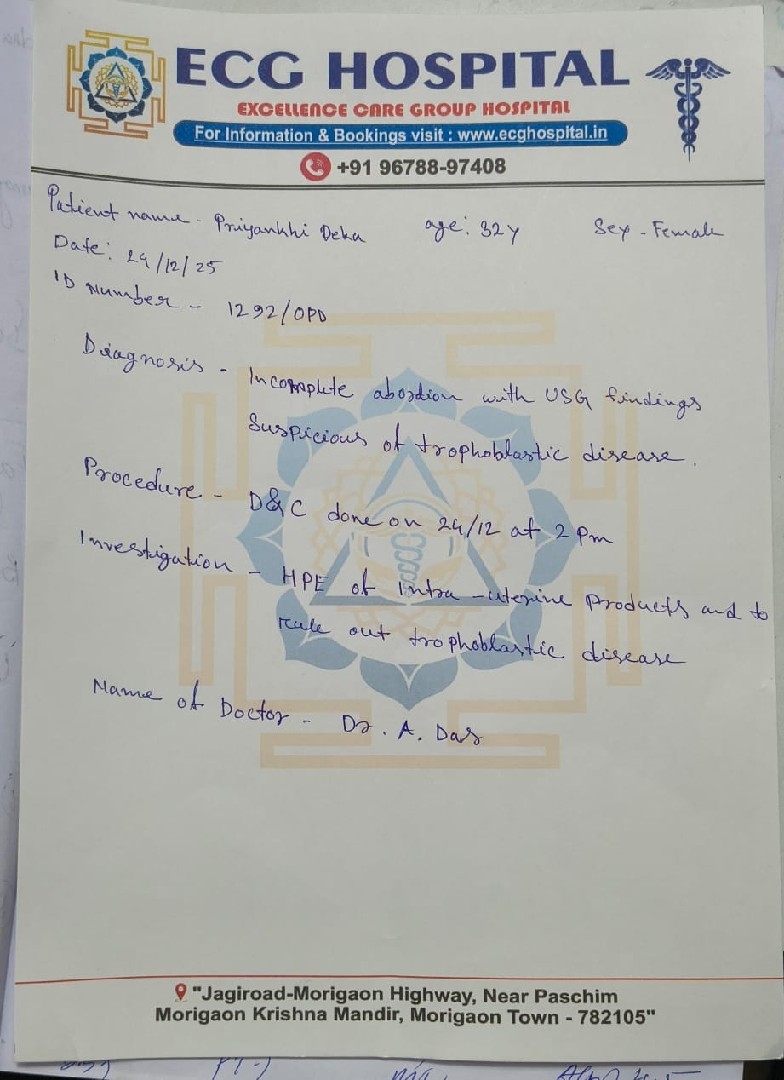 ECG HOSPITAL
EXCELLENCE CARE GROUP HOSPITAL
For Information & Bookings visit : www.ecghospital.in
+91 96788-97408
Patient name - Priyankhi Deka age: 32y Sex - Female
Date: 24/12/25
ID Number - 1292/OPD
Diagnosis - Incomplete abortion with USG findings
Suspicious of trophoblastic disease.
Procedure - D&C done on 24/12 at 2 pm
Investigation - HPE of Intra-uterine products and to
rule out trophoblastic disease
Name of Doctor - Dr. A. Das
"Jagiroad-Morigaon Highway, Near Paschim
Morigaon Krishna Mandir, Morigaon Town - 782105"